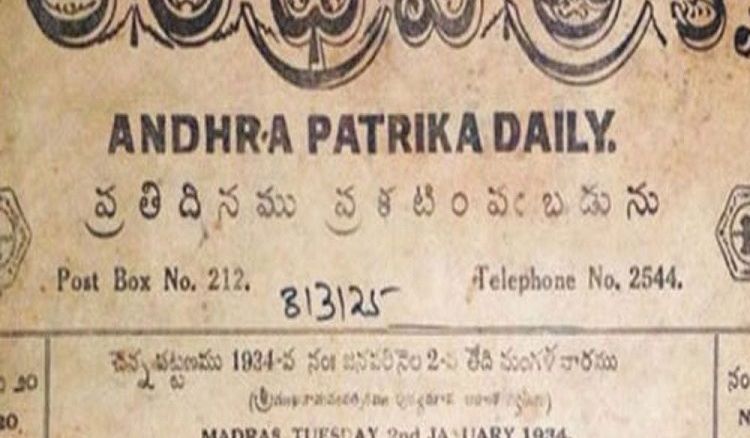 ANDHRA PATRIKA DAILY.
ప్రతిదినము ప్రకటింపఁబడును
Post Box No. 212. Telephone No. 2544.
8/3/25
చెన్నపట్టణము 1934-వ సం జనవరినెల 2-వ తేది మంగళవారము
20
MADRAS, TUESDAY 2nd JANUARY 1934